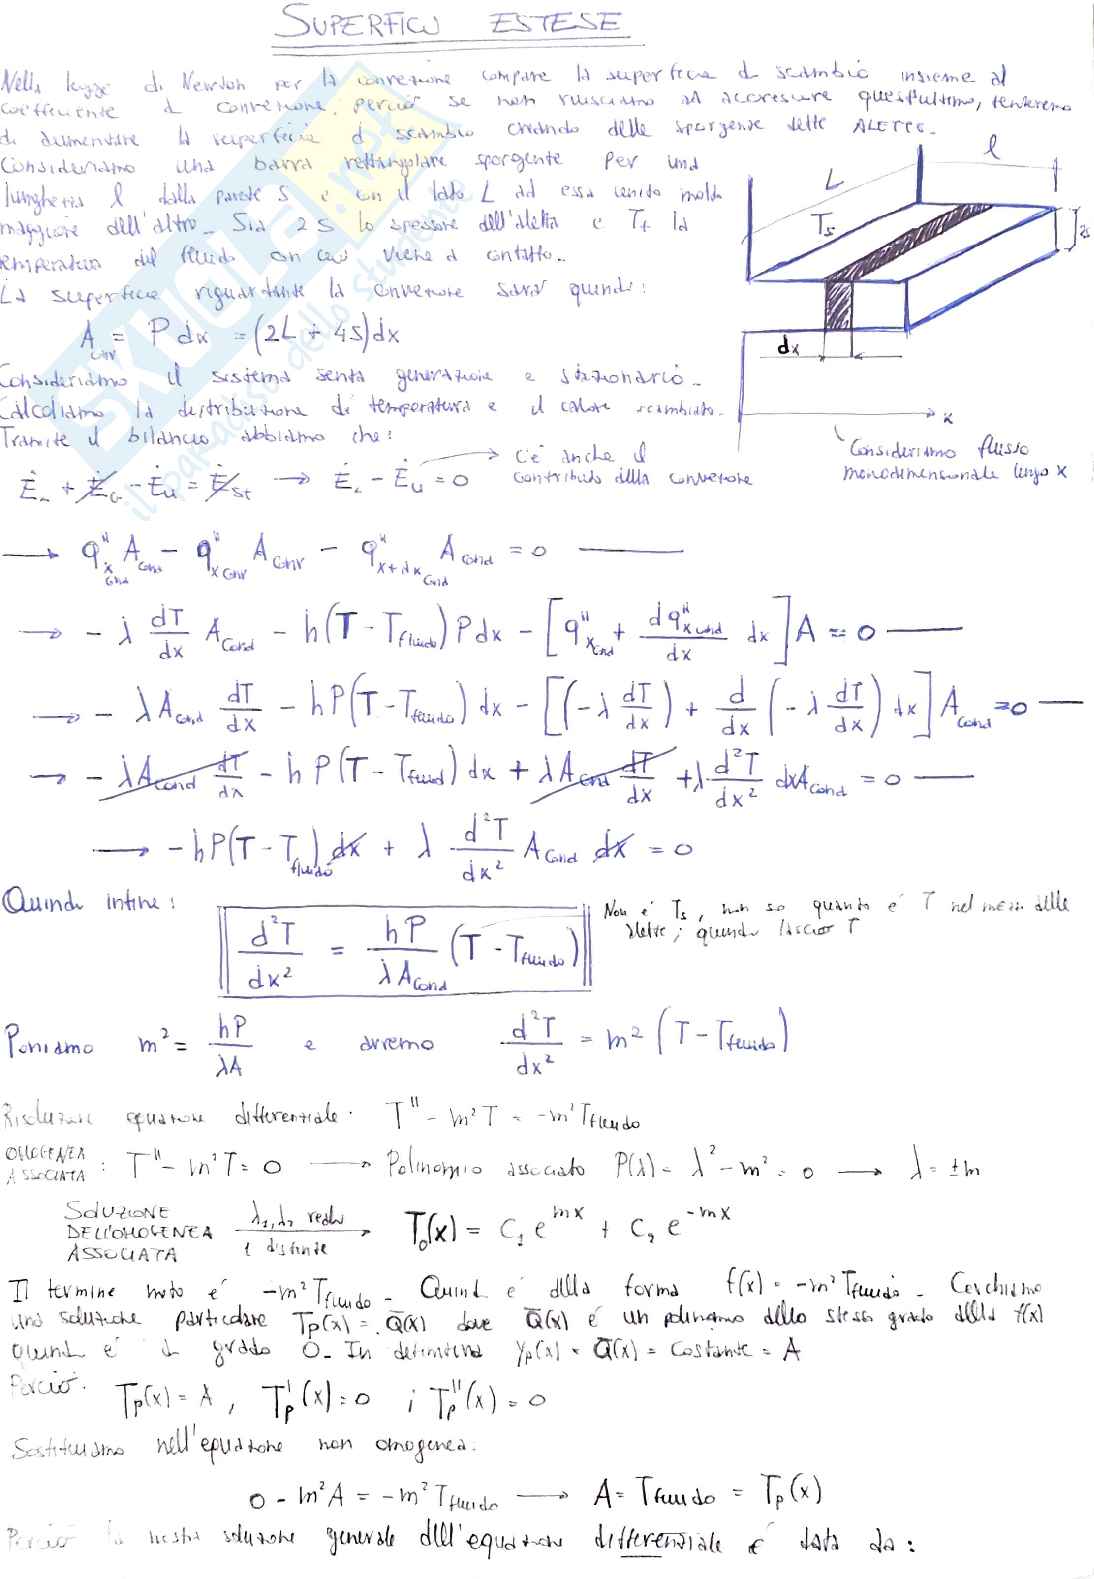 SUPERFICI ESTESE
Nella legge di Newton per la convezione compare la superficie di scambio insieme al
coefficiente di convezione, perciò se non riusciamo ad accrescere quest'ultimo, tenteremo
di aumentare la superficie di scambio creando delle sporgenze dette ALETTE.
Consideriamo una barra rettangolare sporgente per una
lunghezza l dalla parete s e con il lato L ad essa unido molto
maggiore dell'altro. Sia 2s lo spessore dell'aletta e Tf la
temperatura del fluido con cui viene a contatto..
La superficie riguardante la convezione sarà quindi:
A conv = P dx = (2L + 4s)dx
Consideriamo il sistema senza generazione e stazionario.
Calcoliamo la distribuzione di temperatura e il calore scambiato.
Tramite il bilancio abbiamo che:
L
l
Ts
2s
dx
x
Consideriamo flusso
monodimensionale lungo x
Ė + ĖG - ĖU = ĖSt → Ė - ĖU = 0
C'è anche il
contributo della convezione
→ q''x cond A cond - q''x conv A conv - q''x+dx cond A cond = 0
→ - λ dT/dx A cond - h(T - T fluido) P dx - [q''x cond + d q''x cond/dx dx] A = 0
→ - λ A cond dT/dx - hP(T - T fluido) dx - [(-λ dT/dx) + d/dx (-λ dT/dx) dx] A cond = 0
→ - λ A cond dT/dx - h P(T - T fluid) dx + λ A cond dT/dx + λ d²T/dx² dx A cond = 0
→ - hP(T - T fluido) dx + λ d²T/dx² A cond dx = 0
Quindi infine:
d²T/dx² = hP/λA cond (T - T fluido)
Non è Ts, non so quanto è T nel mezzo delle
alette, quindi lascio T
Poniamo m² = hP/λA e avremo d²T/dx² = m² (T - T fluido)
Risoluzione equazione differenziale: T'' - m²T = -m² T fluido
OMOGENEA
ASSOCIATA : T'' - m²T = 0 → Polinomio associato P(λ) = λ² - m² = 0 → λ = ±m
SOLUZIONE
DELL'OMOGENEA
ASSOCIATA
λ1, λ2 reali
e distinte → To(x) = C1 e^mx + C2 e^-mx
Il termine noto è -m² T fluido. Quindi è della forma f(x) = -m² T fluido. Cerchiamo
una soluzione particolare Tp(x) = Q̄(x) dove Q̄(x) è un polinomio dello stesso grado della f(x)
quindi è di grado 0. In definitiva yp(x) = Q̄(x) = Costante = A
Perciò: Tp(x) = A , T'p(x) = 0 ; T''p(x) = 0
Sostituiamo nell'equazione non omogenea.
0 - m²A = -m² T fluido → A = T fluido = Tp(x)
Perciò la nostra soluzione generale dell'equazione differenziale è data da: